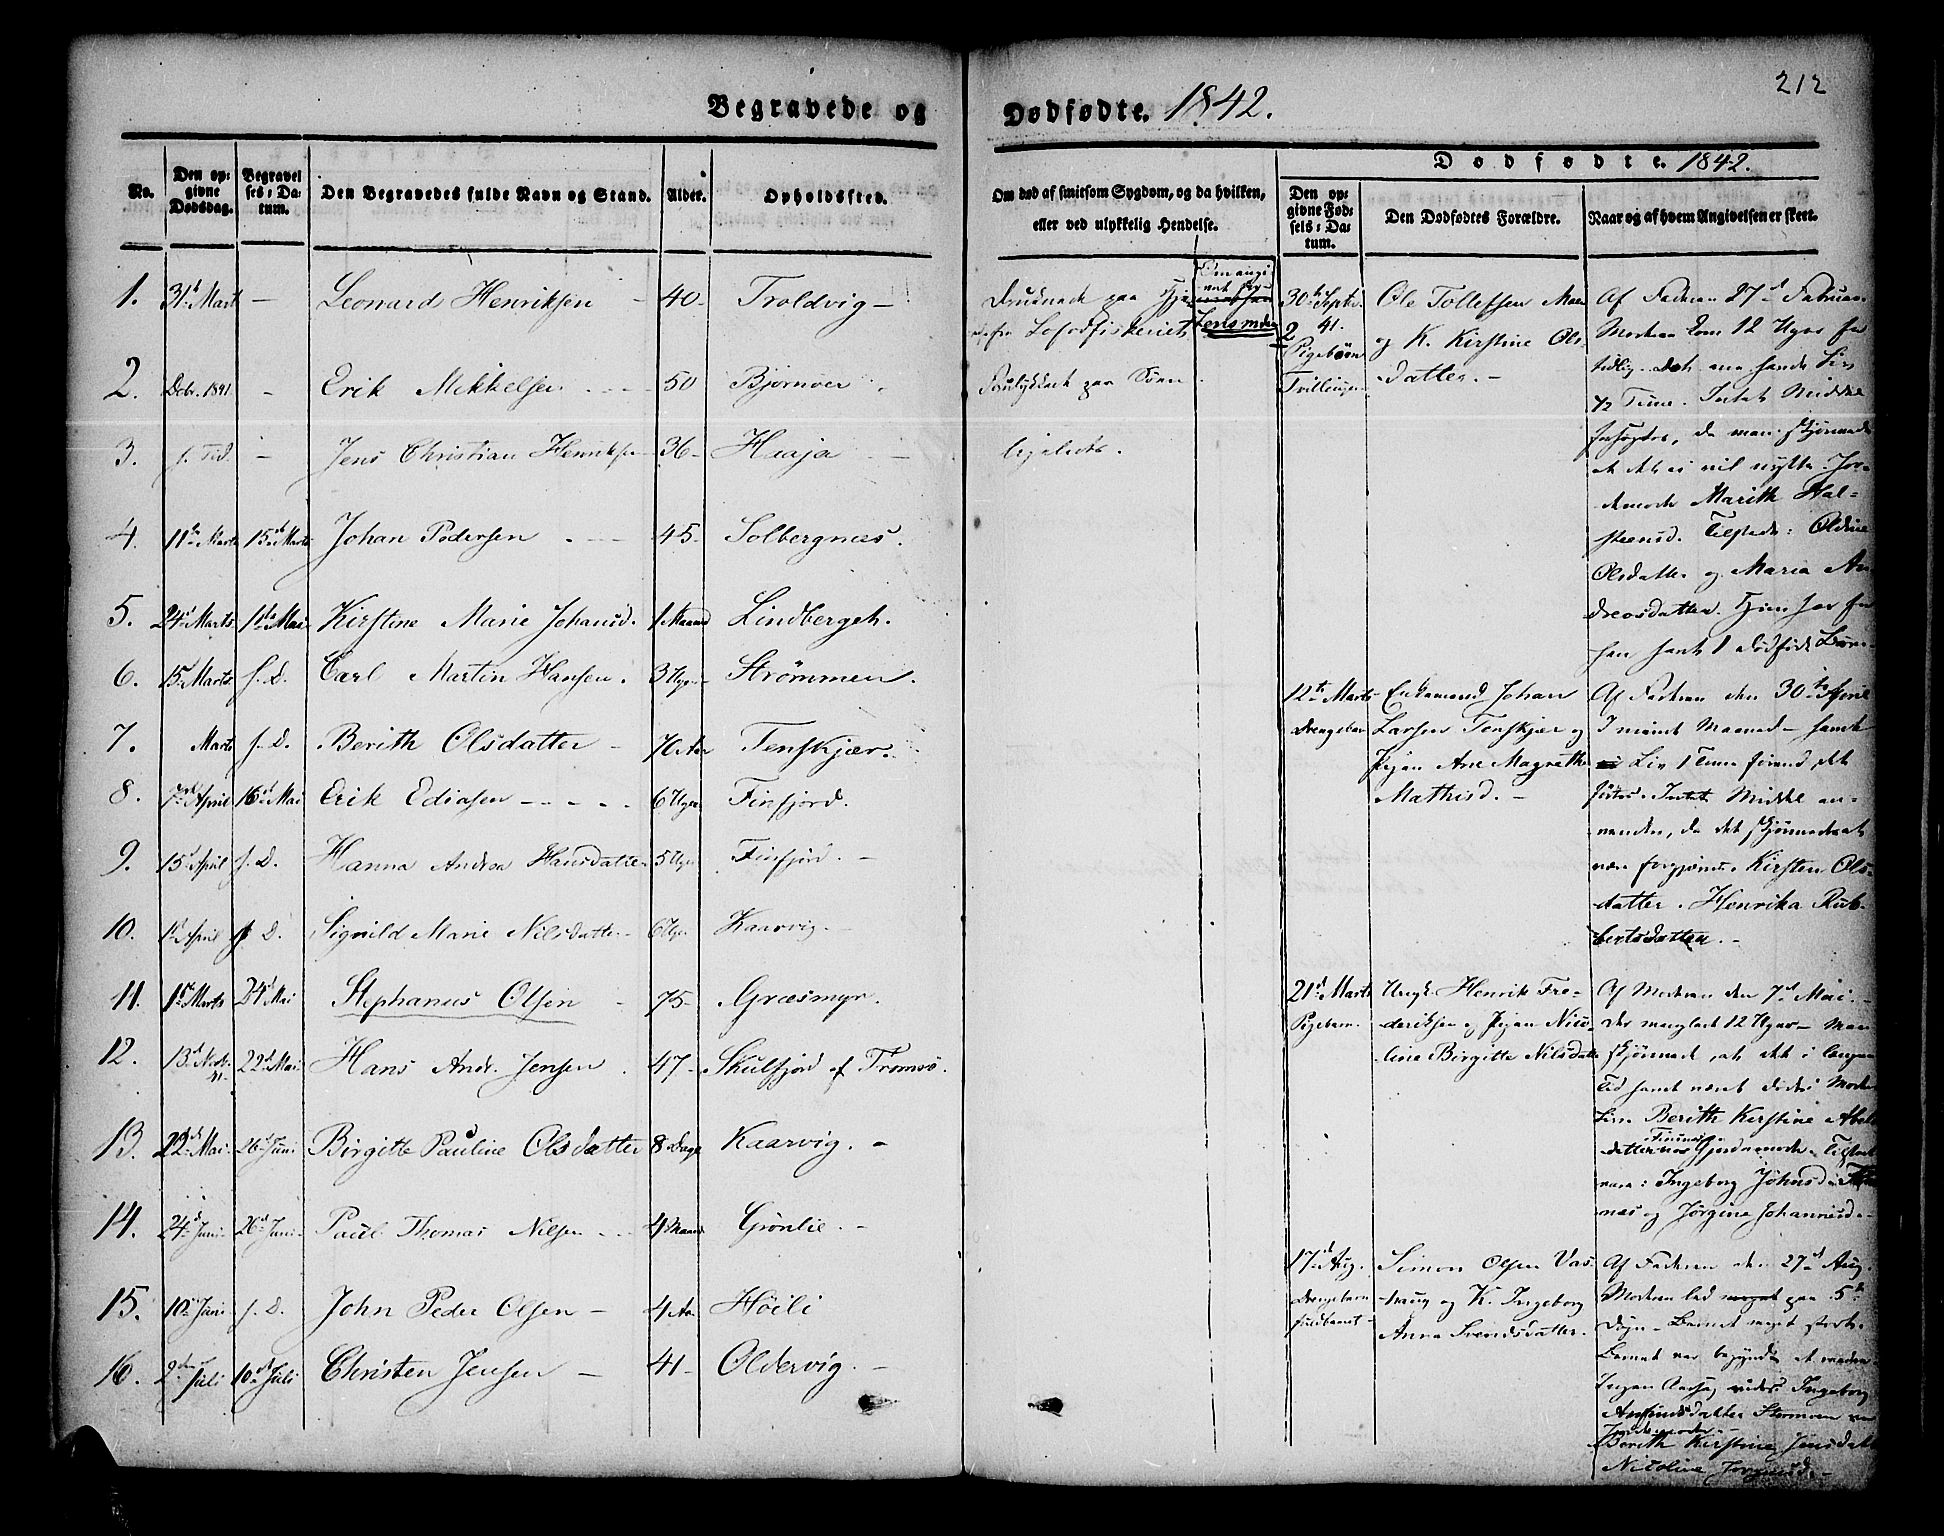 212
Begravede og Dødfødte. 1842.
No.
Den opgivne Dødsdag.
Begravelses-Datum.
Den Begravedes fulde Navn og Stand.
Alder.
Opholdssted.
Om død af smitsom Sygdom, og da hvilken,
eller ved ulykkelig Hendelse.
1. 31t Mart – Leonard Henriksen – 40 – Troldvig –
Druknede paa Hj
fra Lofodfiskeriet
2. Debr. 1841 – Erik Mikkelsen 50 Bjornøer
Forulykket paa Søen
3. s. Tid. – Jens Christian Henriksen 36 – Haaja –
ligeledes.
4. 11te Marts 15de Marts Johan Pedersen 45. Solbergnæs.
5. 24d Marts 11te Mai Kirstine Marie Johansd. 1 Maaned Lindbergeh.
6. 15 Marts s. D. Carl Martin Hansen. 3 Uger Strömmen.
7. Marts s. D. Berith Olsdatter – 70 Aar Tenskjær.
8. 7de April 16d Mai Erik Ediasen – – – – 6 Uger Finfjord.
9. 15 April s. D. Hanna Andrea Hansdatter 5 Uger Finfjord. –
10. 1t April s. D. Signild Marie Nilsdatter – 6 Uger Kaarvig. –
11. 1t Marts 24d Mai Stephanus Olsen – 75 – Græsmyr.
12. 13d 41. 22d Mai Hans Andr. Jensen. 47 – Skulfjord af Tromsö.
13. 22d Mai 26d Juni Birgitte Pauline Olsdatter 8 Dage Kaarvig. –
14. 24d Juni 26d Juni Paul Thomas Nilsen 4 Maaned Grönlie. –
15. 10 Juni s. D. John Peder Olsen – 4 Aar Höili
16. 2den Juli 10d Juli Christen Jensen – 41 – Oldervig. –
Dodfødte. 1842.
Den opgivne Fødsels-Datum.
Den Dødfødtes Forældre.
Naar og af hvem Angivelsen er skeet.
30te Septbr. 41.
2 Pigebörn
Tvillinger
Ole Tollefsen
og K. Kirstine Ols-
datter. –
Af Faderen 27d Februar
Moderen kom 12 Uger for
tidlig. Det ene havde Liv
1/2 Time. Intet Middel
forsøgtes, da man skjønnede
at det ei vil nytte. Jor-
demoder Marith Hal-
steensd. Tilstede: Oldine
Olsdatter og Maria An-
dreasdatter. Hun har för
han havt 1 dødfødt Barn
12te Marts
Drengebarn
Enkemand Johan
Larsen Tenskjær og
Pigen Ane Magrethe
Mathisd. –
Af Faderen den 30te April
I niende Maaned – havde
Liv 1 Time førend det
fødtes. Intet Middel an-
vendtes, da det skjønnedes at
være forgjæves. Kirsten Ols-
datter. Henrika Rub-
bertsdatter. –
21d Marts
Pigebarn
Ungk. Henrik Fre-
deriksen og Pigen Nico-
line Birgitte Nilsdatter
Af Moderen den 7d Mai. –
Der manglede 12 Uger – Man
skjønnede, at det i længere
Tid havde været død i Moders
Liv. Berith Kirstine Abel-
datter Finnæs Jordemoder. Tilstede
vare: Ingeborg Johnsd.
næs og Jörgine Johannesd. –
17d Aug.
Drengebarn
fuldbaaret –
Simon Olsen Vas-
haug og K. Ingeborg
Anna Svendsdatter.
Af Faderen den 27d Aug.
Moderen led paa 5te
Døgn – Barnet meget stort.
Barnet var begyndt at raadne
Ingen Aarsag vides. Ingeborg
Amundsdatter Stormoen var
Jordemoder. –
Berith Kirstine Jensdat
Nicoline Jorgensd. –